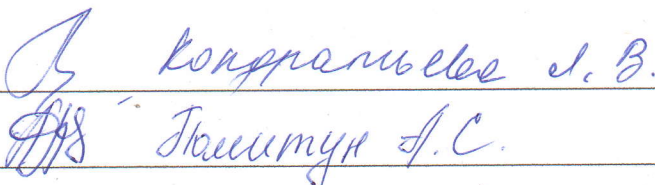 Кондратьева Л. В.
Помитун А. С.